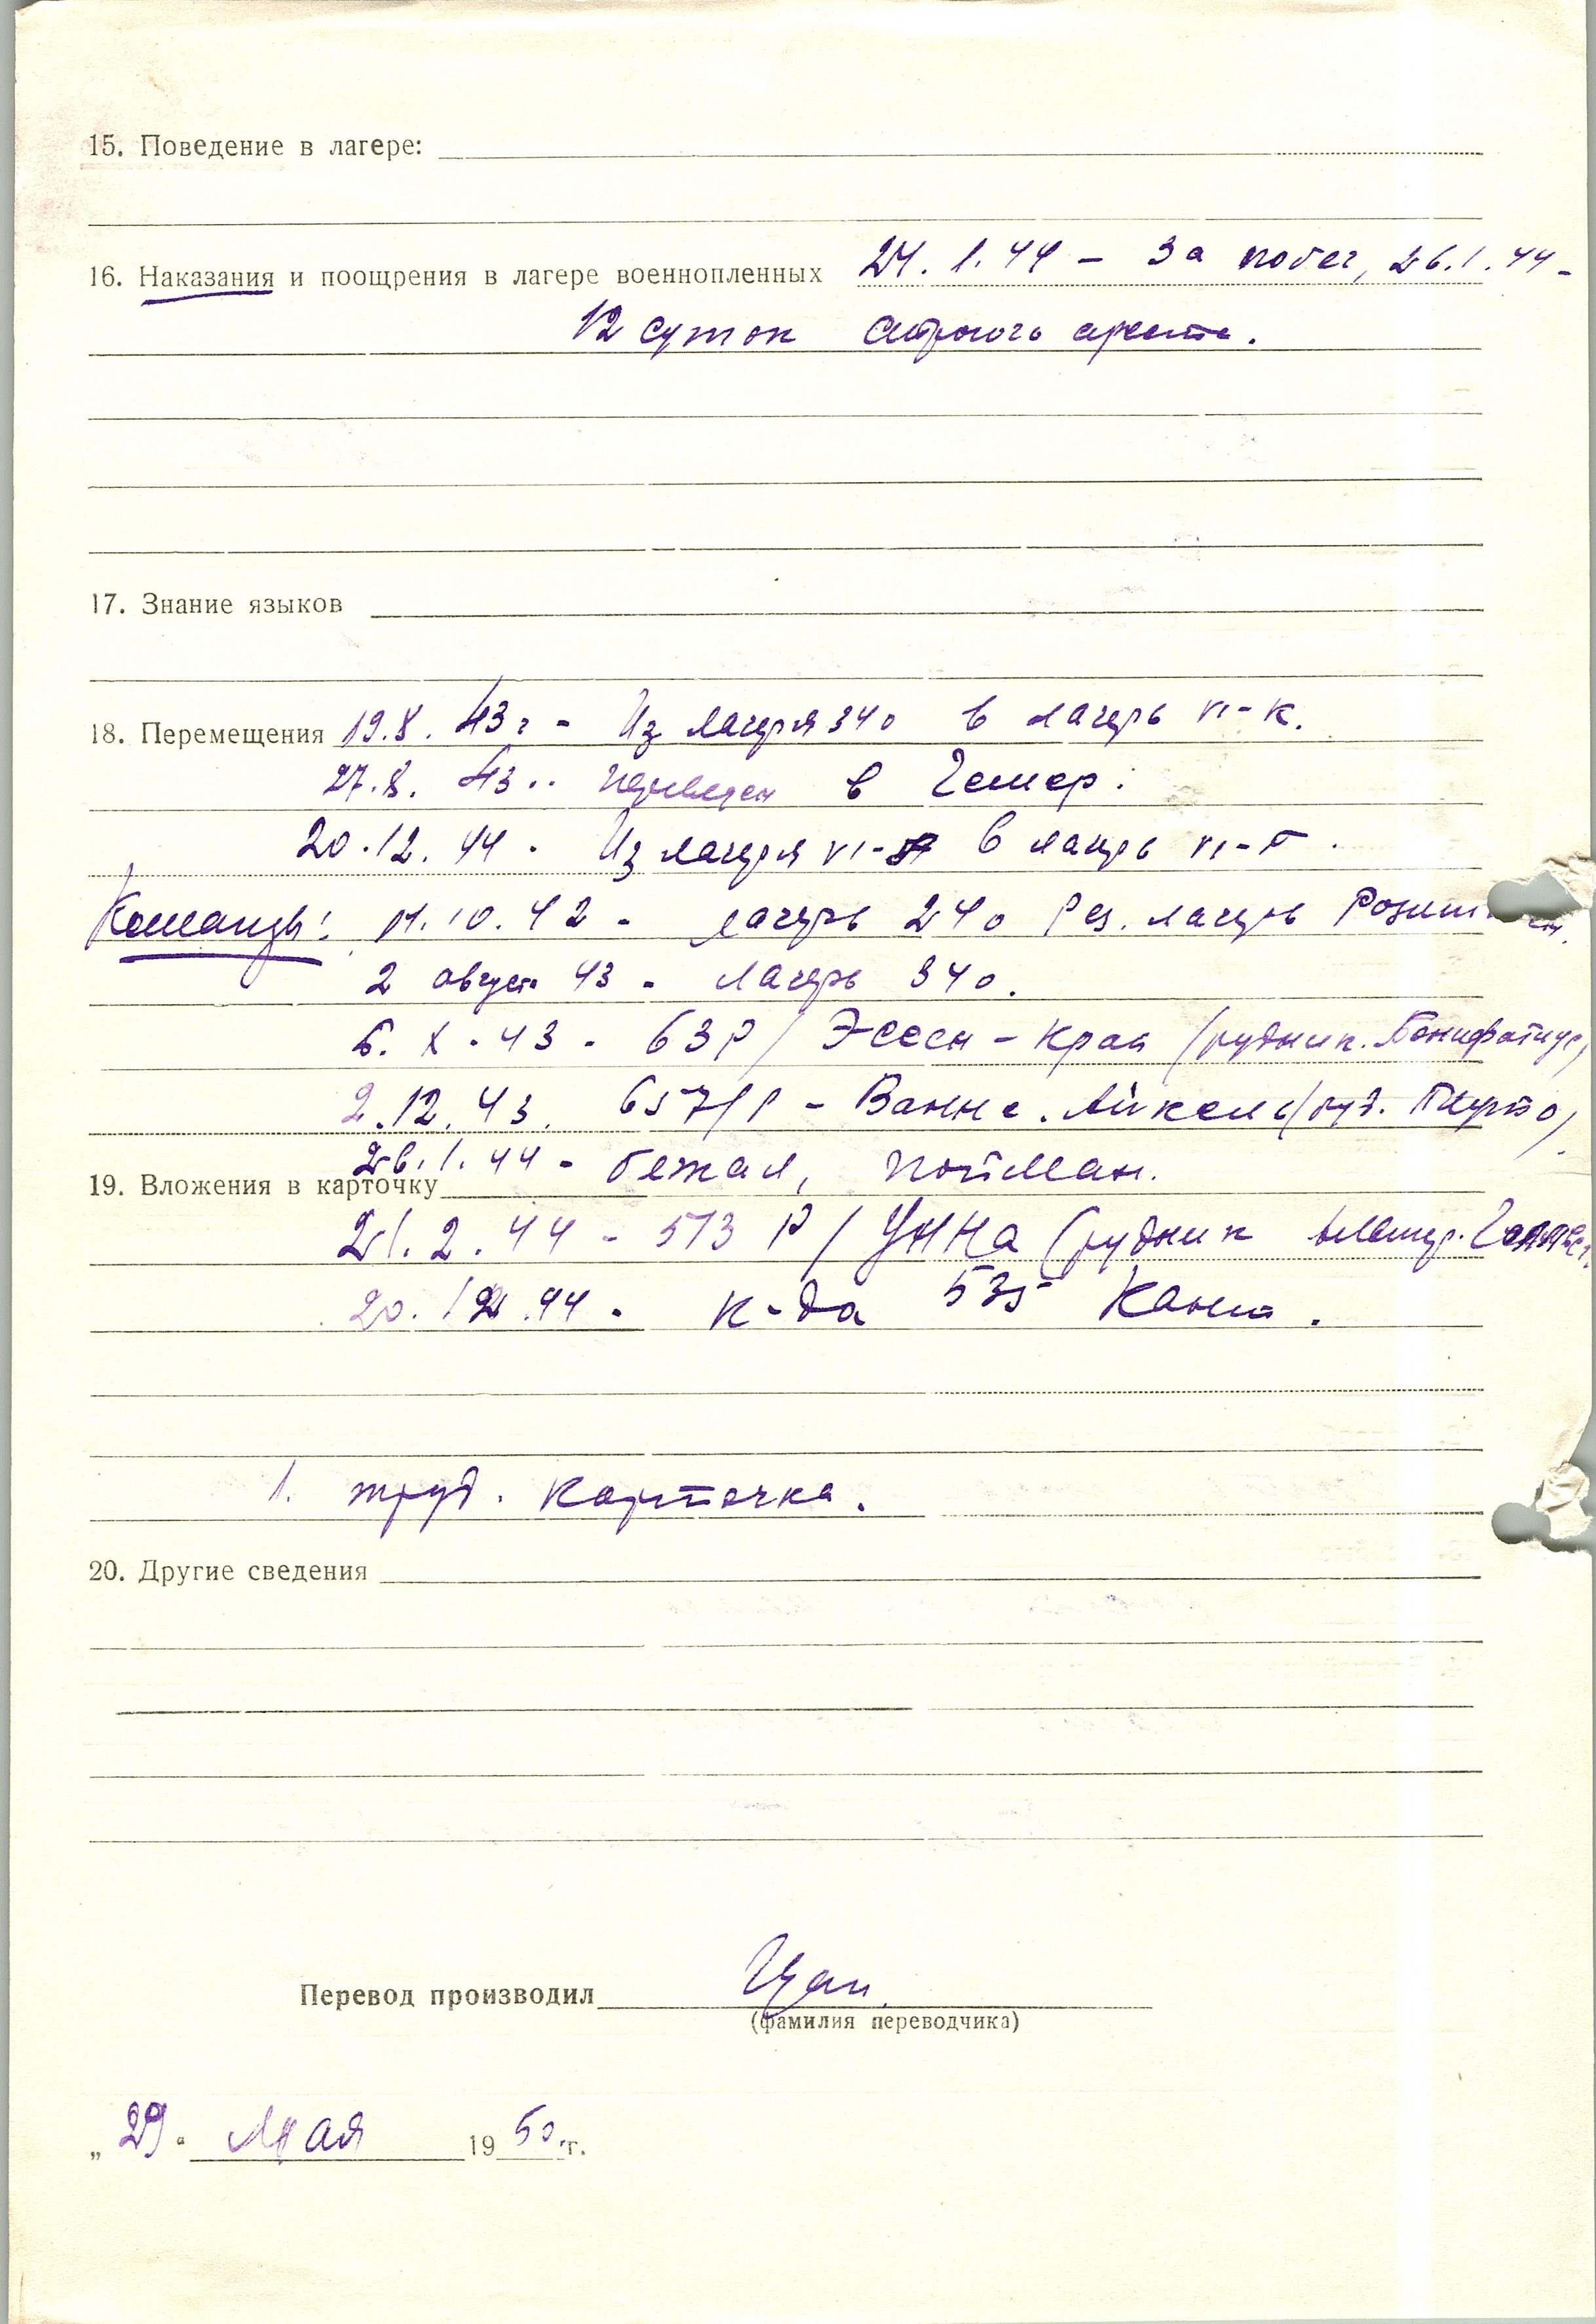 15. Поведение в лагере:
16. Наказания и поощрения в лагере военнопленных 24.1.44 – За побег, 26.1.44 –
12 суток строгого ареста.
17. Знание языков
18. Перемещения 19.8.43 г - Из лагеря 340 в лагерь VI-К.
27.8.43 .. переведен в Гемер.
20.12.44 - Из лагеря VI-А в лагерь VI-
Команды: 10.42 - лагерь 240 рез. лагерь
2 август 43 - лагерь 340.
X.43 - 63 Р/ Эссен-Край (рудник. Бонифатиус)
2.12.43. 657/Р - Ванне. Айкель (руд. Плуто).
26.1.44 - бежал, пойман.
19. Вложения в карточку
21.2.44 - 513 Р/ Унна (рудник
20.12.44 - к-да 535
1. труд. карточка.
20. Другие сведения
Перевод производил
(фамилия переводчика)
„29" Мая 1950 г.